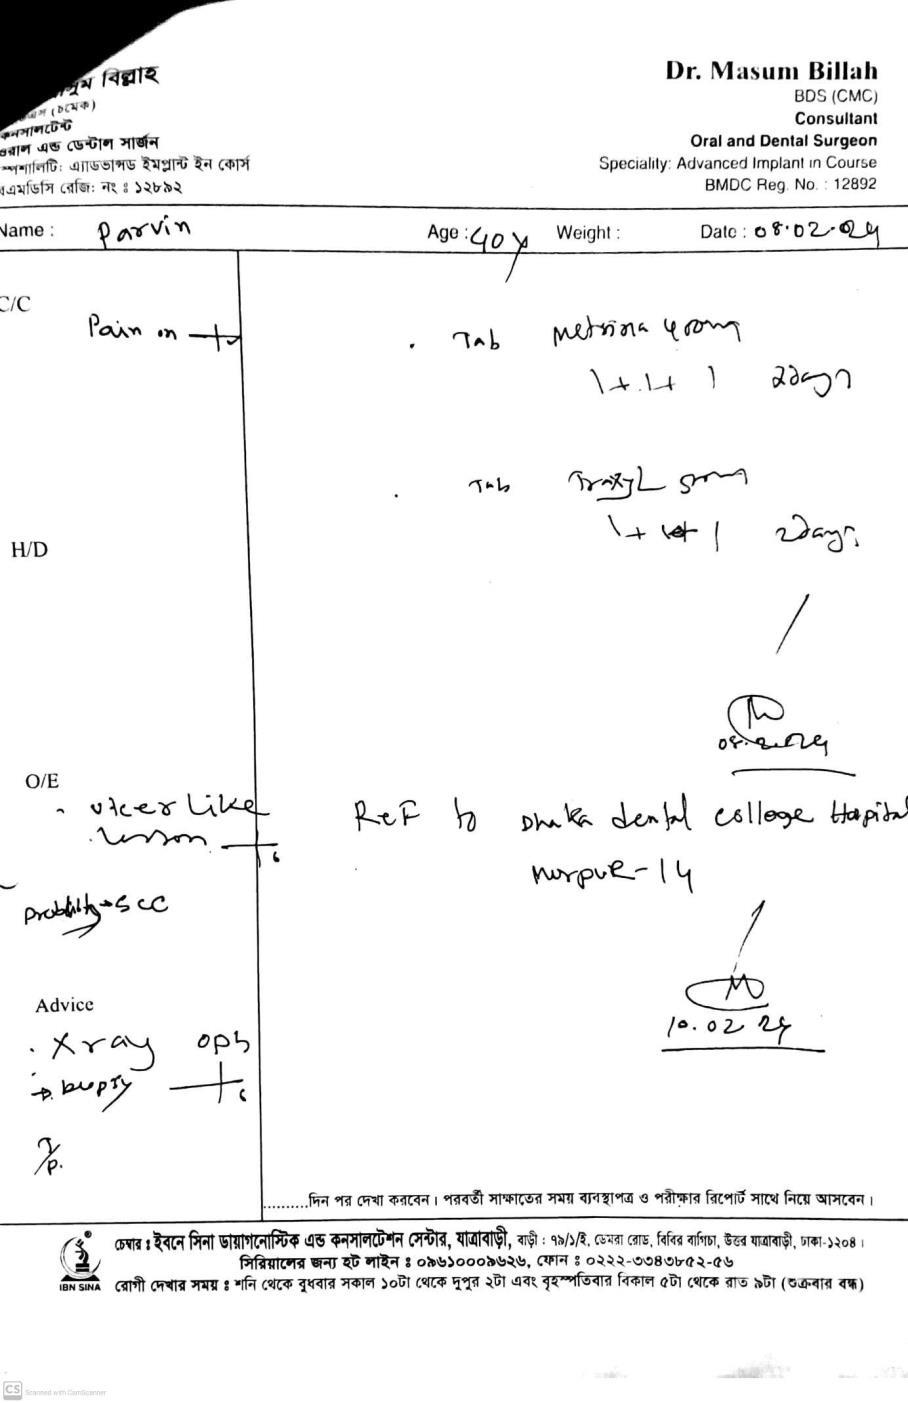 বিল্লাহ
(চমেক)
কনসালটেন্ট
ওরাল এন্ড ডেন্টাল সার্জন
স্পেশালিটি: এ্যাডভান্সড ইমপ্লান্ট ইন কোর্স
বিএমডিসি রেজি: নং ঃ ১২৮৯২
Dr. Masum Billah
BDS (CMC)
Consultant
Oral and Dental Surgeon
Speciality: Advanced Implant in Course
BMDC Reg. No. : 12892
Name : Parvin Age : 40 y Weight : Date : 08.02.24
C/C
Pain on
. Tab 400mg
1+1+1 2days
. Tab
1+1+1 2days
H/D
08.2.24
O/E
. ulcer like
lesson 6
Ref to Dhaka dental college Hospital
Mirpur-14
SCC
10.02 24
Advice
. Xray OPG
→ biopsy 6
..........দিন পর দেখা করবেন। পরবর্তী সাক্ষাতের সময় ব্যবস্থাপত্র ও পরীক্ষার রিপোর্ট সাথে নিয়ে আসবেন।
IBN SINA
চেম্বার ঃ ইবনে সিনা ডায়াগনোস্টিক এন্ড কনসালটেশন সেন্টার, যাত্রাবাড়ী, বাড়ী : ৭৯/১/ই, ডেমরা রোড, বিবির বাগিচা, উত্তর যাত্রাবাড়ী, ঢাকা-১২০৪।
সিরিয়ালের জন্য হট লাইন ঃ ০৯৬১০০০৯৬২৬, ফোন ঃ ০২২২-৩৩৪৩৮৫২-৫৬
রোগী দেখার সময় ঃ শনি থেকে বুধবার সকাল ১০টা থেকে দুপুর ২টা এবং বৃহস্পতিবার বিকাল ৫টা থেকে রাত ৯টা (শুক্রবার বন্ধ)
CS Scanned with CamScanner